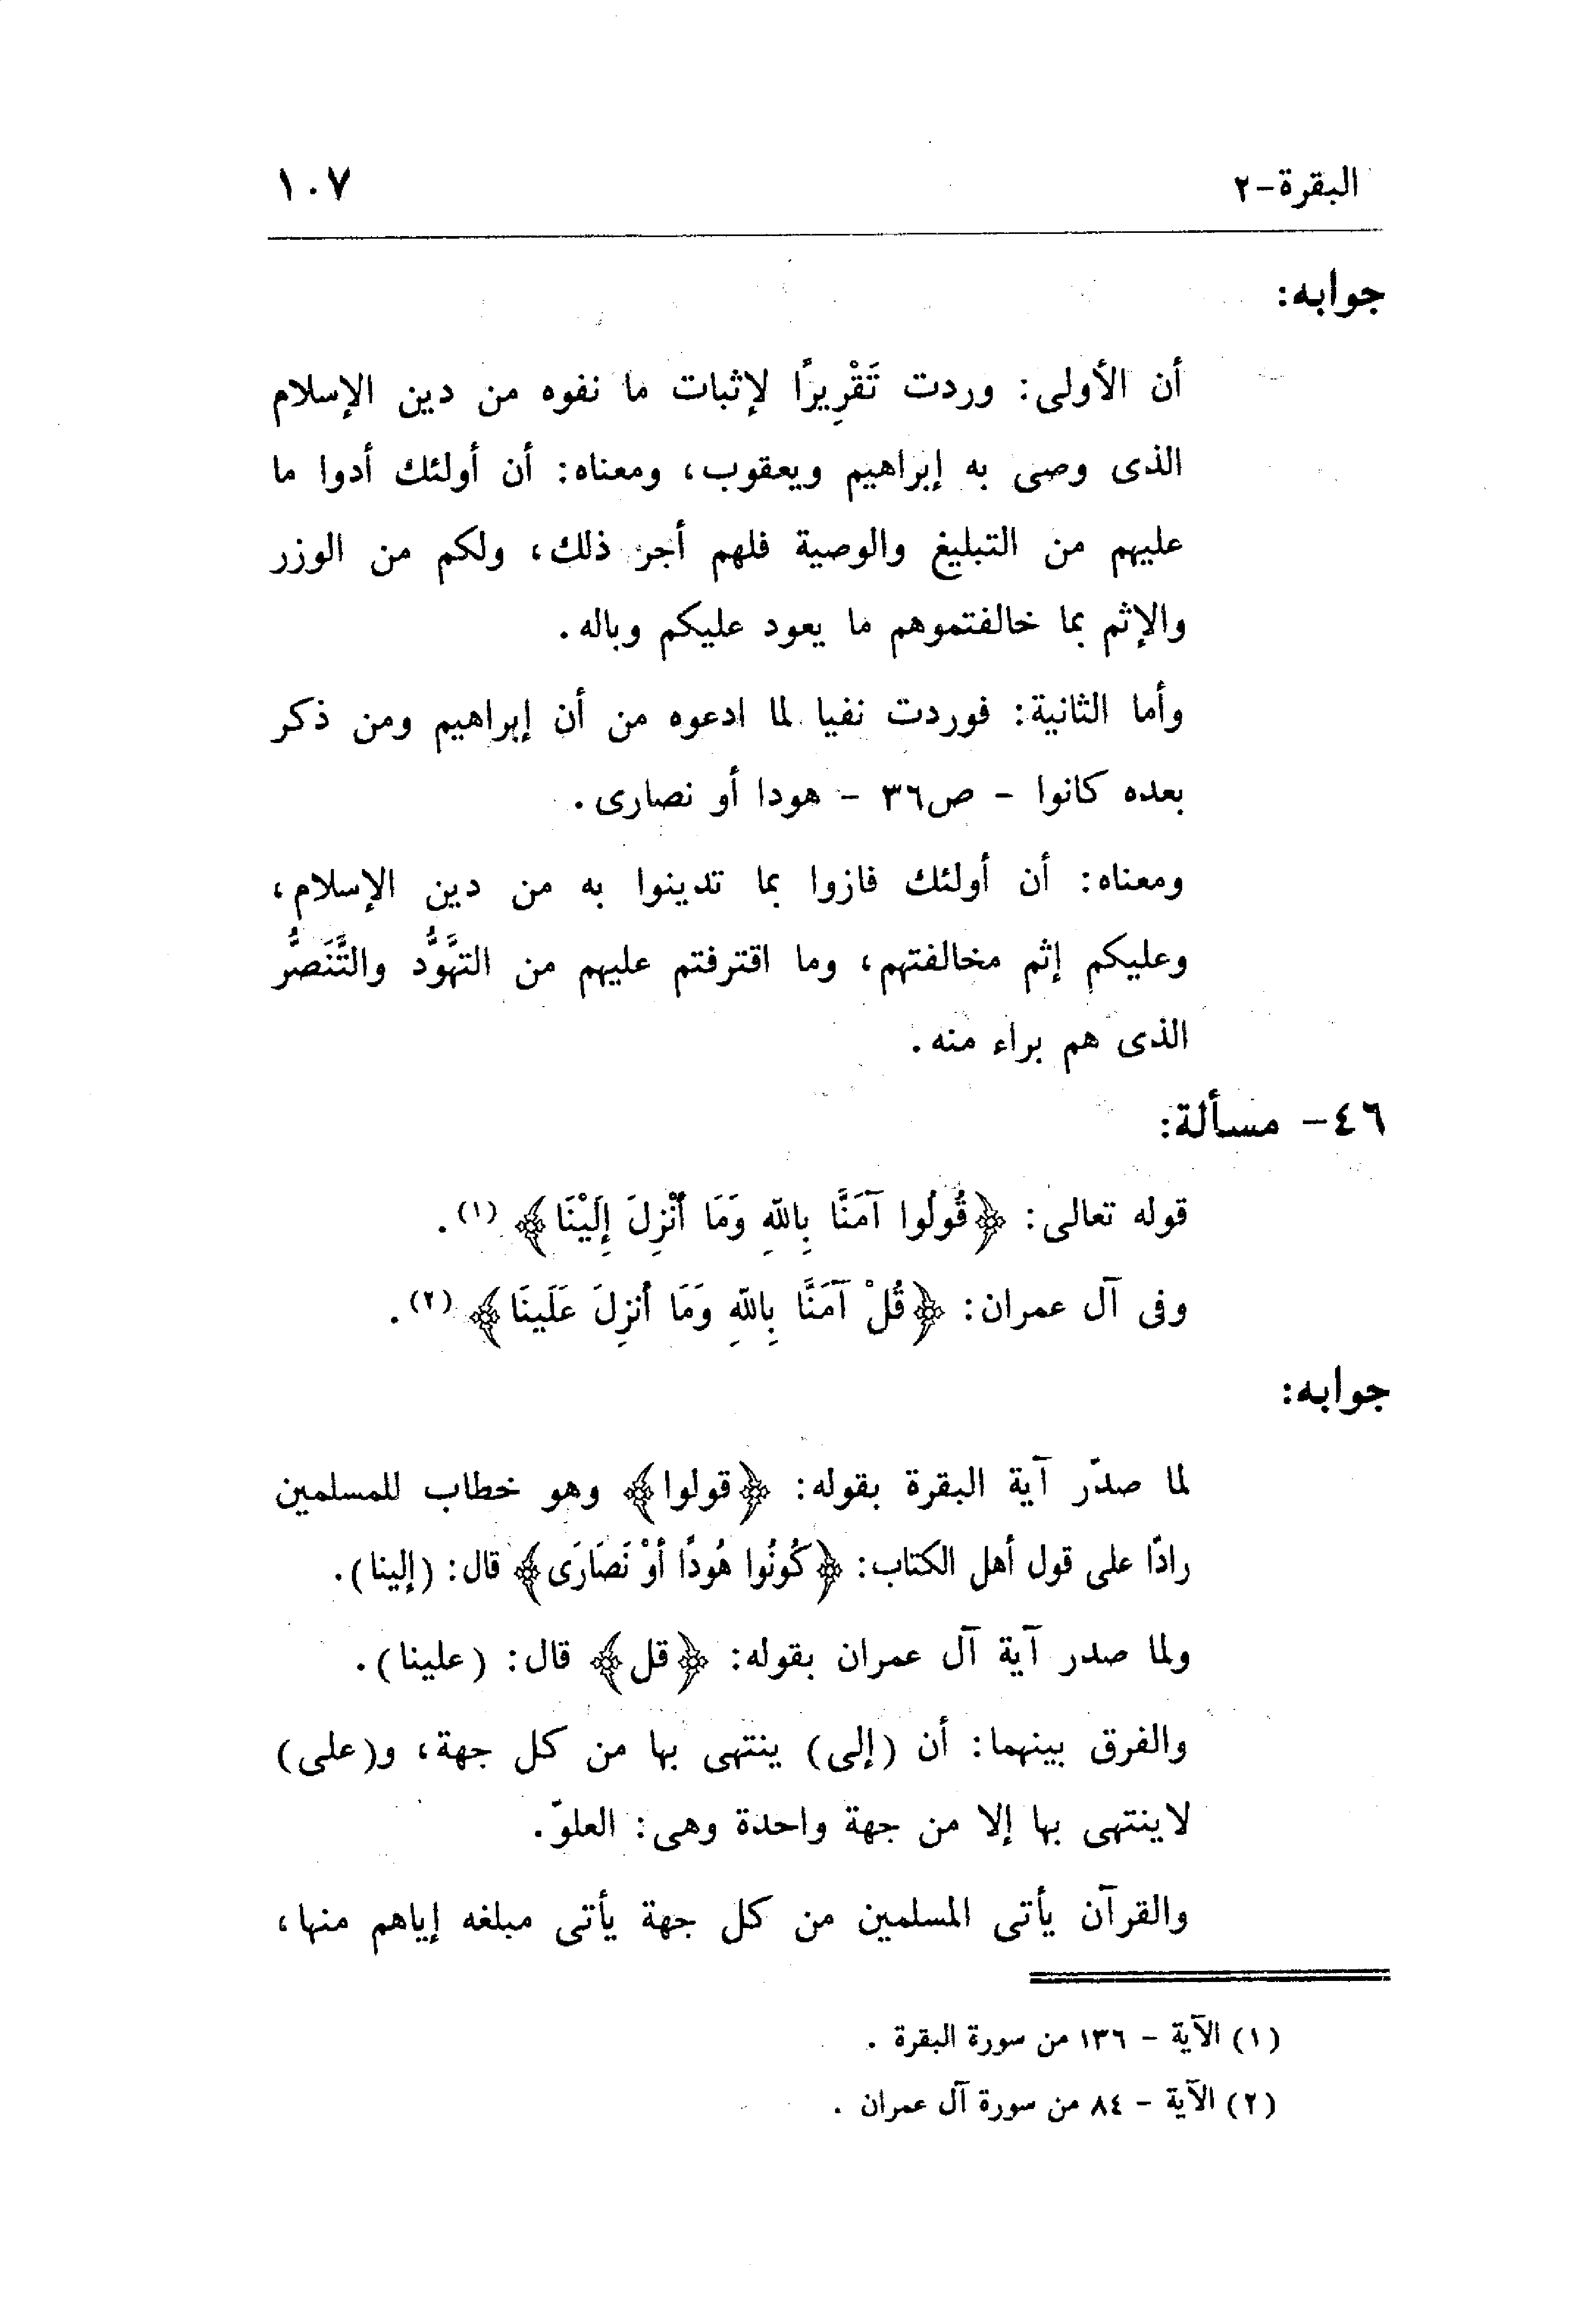 البقرة-٢
١٠٧
جوابه:
أن الأولى: وردت تَقْرِيرًا لإثبات ما نفوه من دين الإسلام
الذى وصى به إبراهيم ويعقوب، ومعناه: أن أولئك أدوا ما
عليهم من التبليغ والوصية فلهم أجر ذلك، ولكم من الوزر
والإثم بما خالفتموهم ما يعود عليكم وباله.
وأما الثانية: فوردت نفيا لما ادعوه من أن إبراهيم ومن ذكر
بعده كانوا - ص٣٦ - هودا أو نصارى.
ومعناه: أن أولئك فازوا بما تدينوا به من دين الإسلام،
وعليكم إثم مخالفتهم، وما اقترفتم عليهم من التهَوُّد والتَّنَصُّر
الذى هم براء منه.
٤٦- مسألة:
قوله تعالى: ﴿قُولُوا آمَنَّا بِاللَّهِ وَمَا أُنْزِلَ إِلَيْنَا﴾ (١).
وفى آل عمران: ﴿قُلْ آمَنَّا بِاللَّهِ وَمَا أُنزِلَ عَلَينَا﴾ (٢).
جوابه:
لما صدّر آية البقرة بقوله: ﴿قولوا﴾ وهو خطاب للمسلمين
رادّا على قول أهل الكتاب: ﴿كُونُوا هُودًا أَوْ نَصَارَى﴾ قال: (إلينا).
ولما صدر آية آل عمران بقوله: ﴿قل﴾ قال: (علينا).
والفرق بينهما: أن (إلى) ينتهى بها من كل جهة، و(على)
لاينتهى بها إلا من جهة واحدة وهى: العلوّ.
والقرآن يأتى المسلمين من كل جهة يأتى مبلغه إياهم منها،
(١) الآية - ١٣٦ من سورة البقرة .
(٢) الآية - ٨٤ من سورة آل عمران .